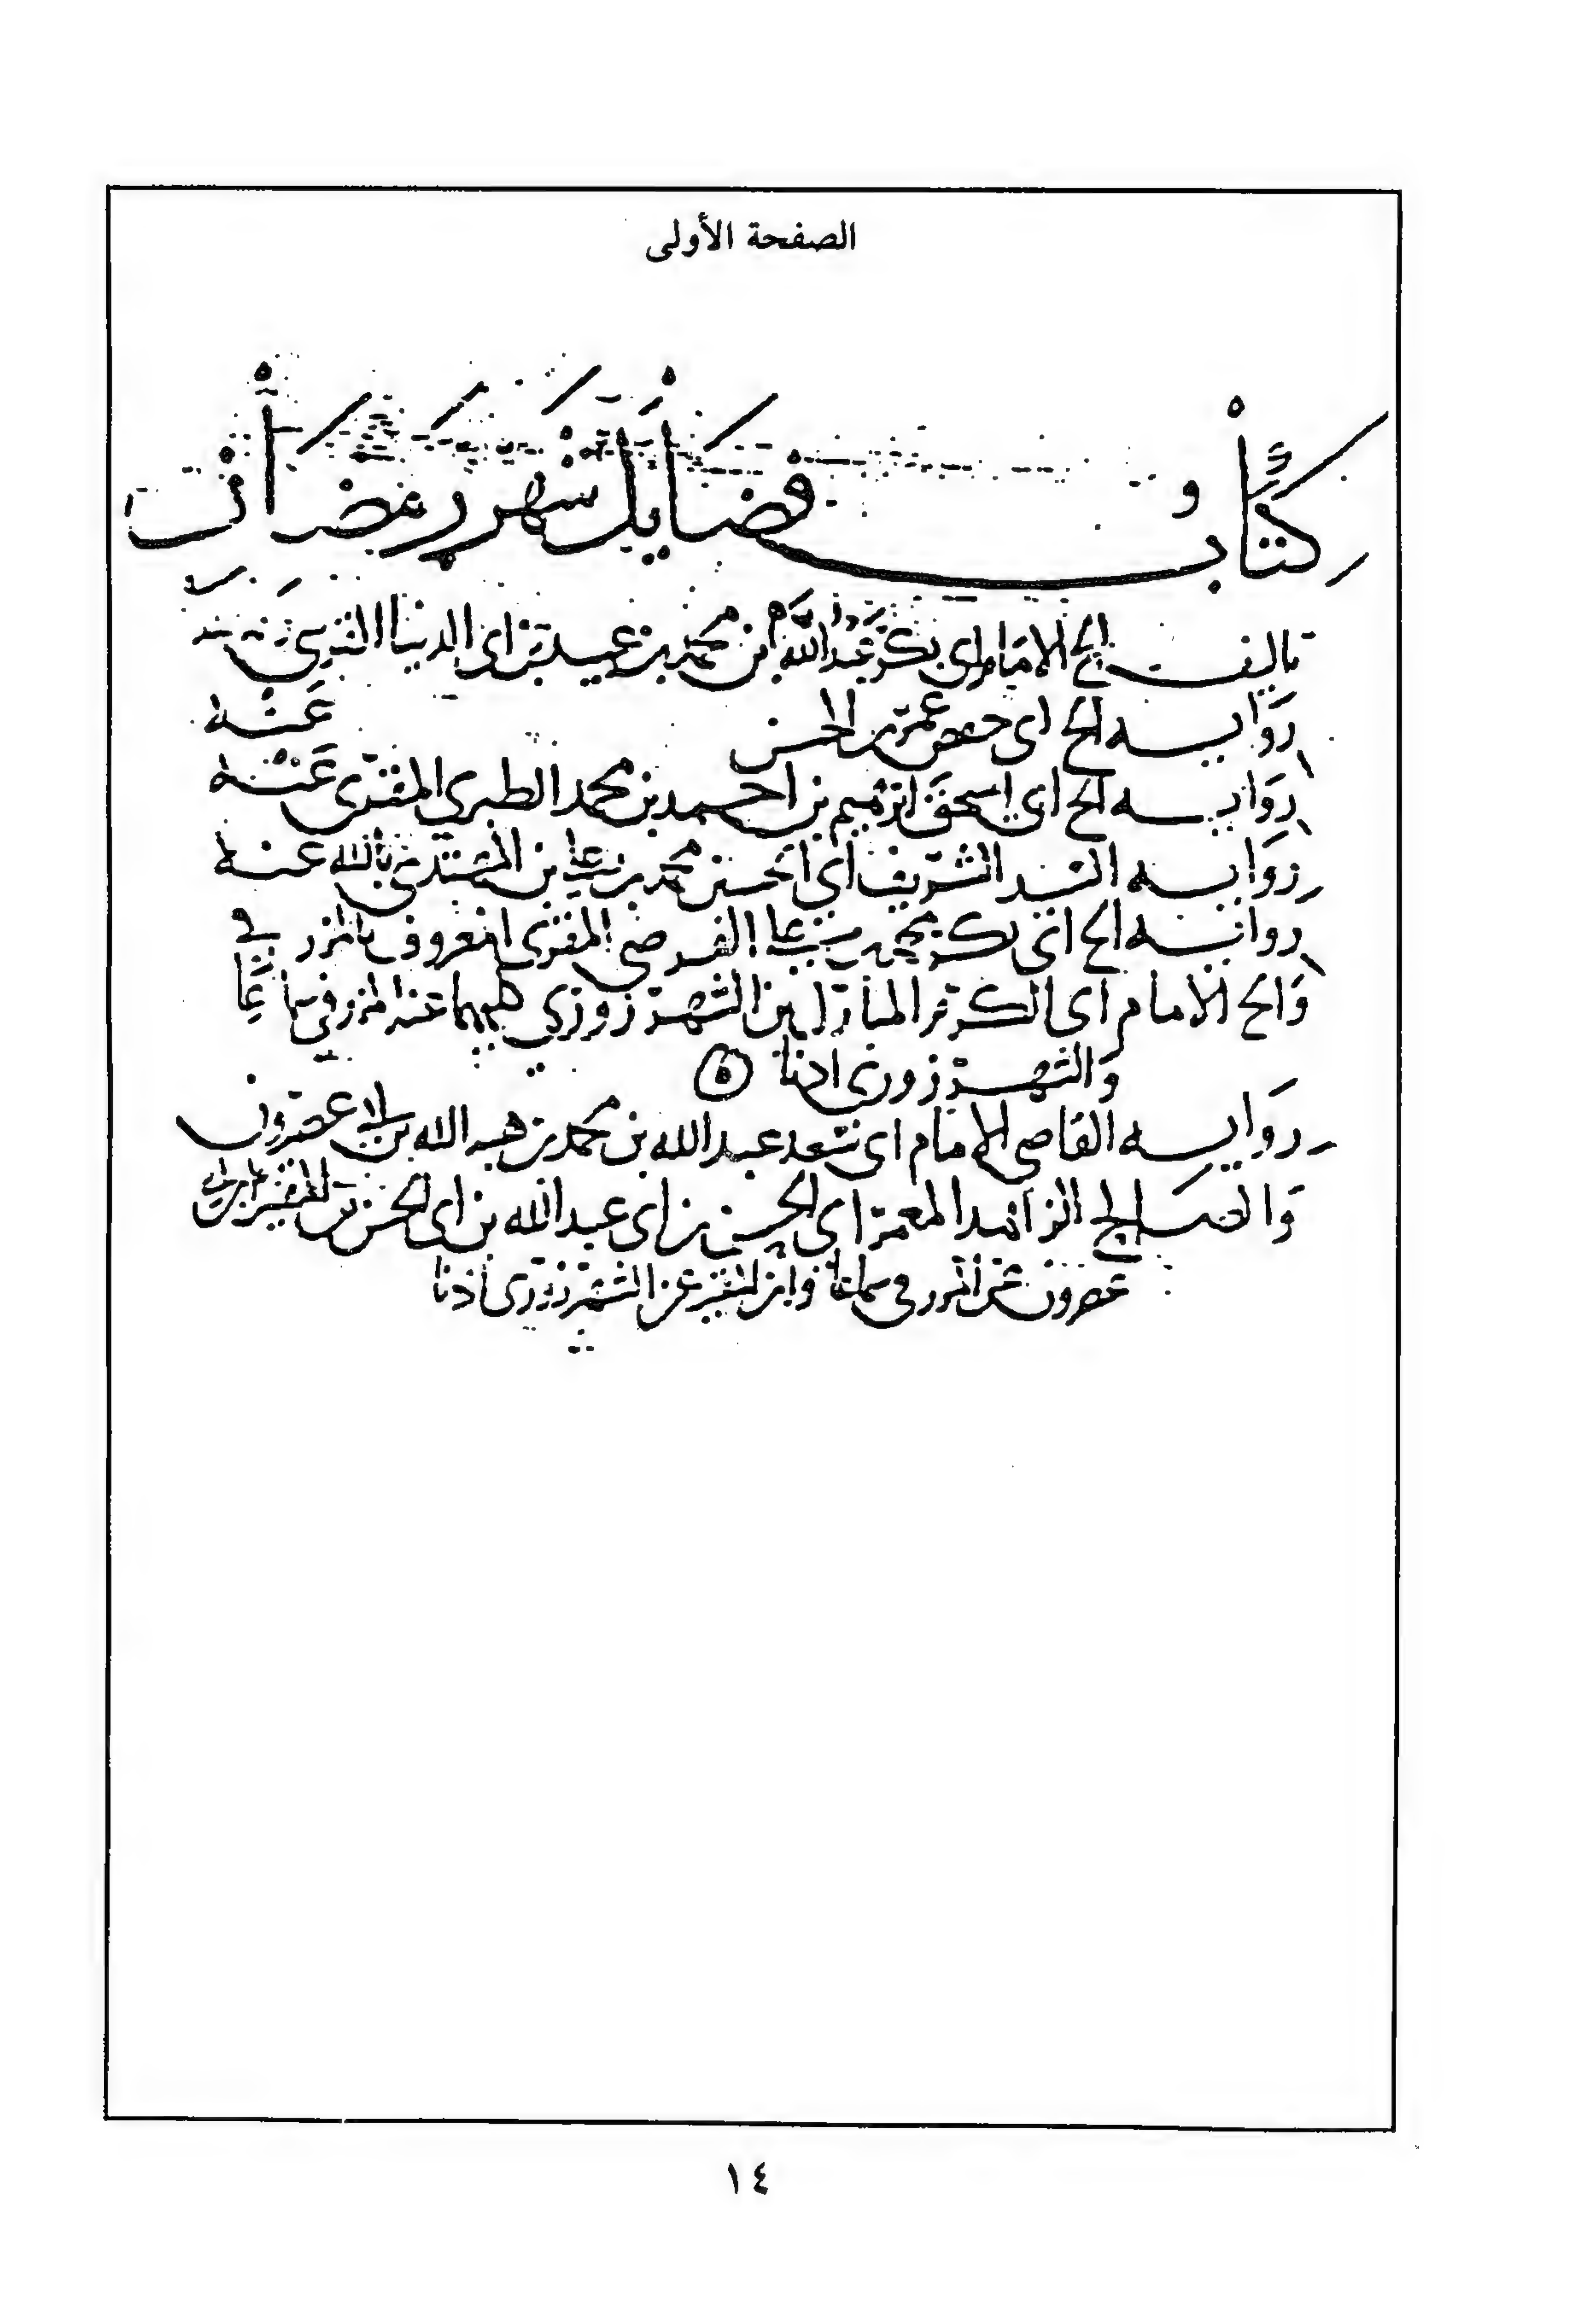 الصفحة الأولى
كتاب فضايل شهر رمضان
تاليف الشيخ الامام ابى بكر عبد الله بن محمد بن عبيد بن ابى الدنيا القرشي
رواية الشيخ ابى حفص عمر بن الحسن عنه
رواية الشيخ ابى اسحق ابرهيم بن احمد بن محمد الطبري المقرى عنه
رواية السيد الشريف ابى الحسين محمد بن على بن المهتدى بالله عنه
رواية الشيخ ابى بكر محمد بن على الفرضي المقرى المعروف بالمزرفي
والشيخ الامام ابى الكرم المبارك بن الشهرزوري كلهما عنه المزرفي سماعا
والشهرزورى اذنا
رواية القاضي الامام ابى سعد عبد الله بن محمد بن هبه الله بن ابى عصرون
والشيخ الصالح الزاهد المعمر ابى الحسن بن ابى عبد الله بن ابى الحسن بن المقير
عصرون عن المزرفى سماعا وابن المقير عن الشهرزورى اذنا
١٤